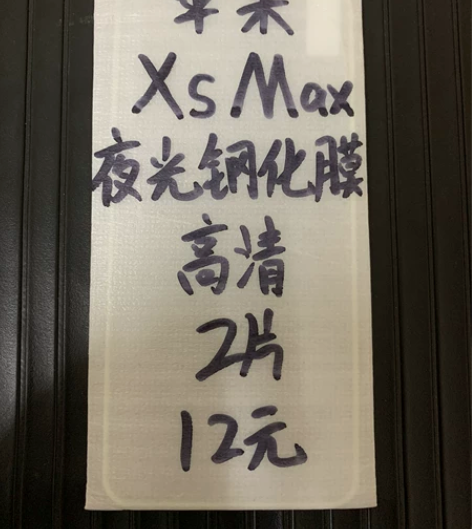 苹果
Xs Max
夜光钢化膜
高清
2片
12元